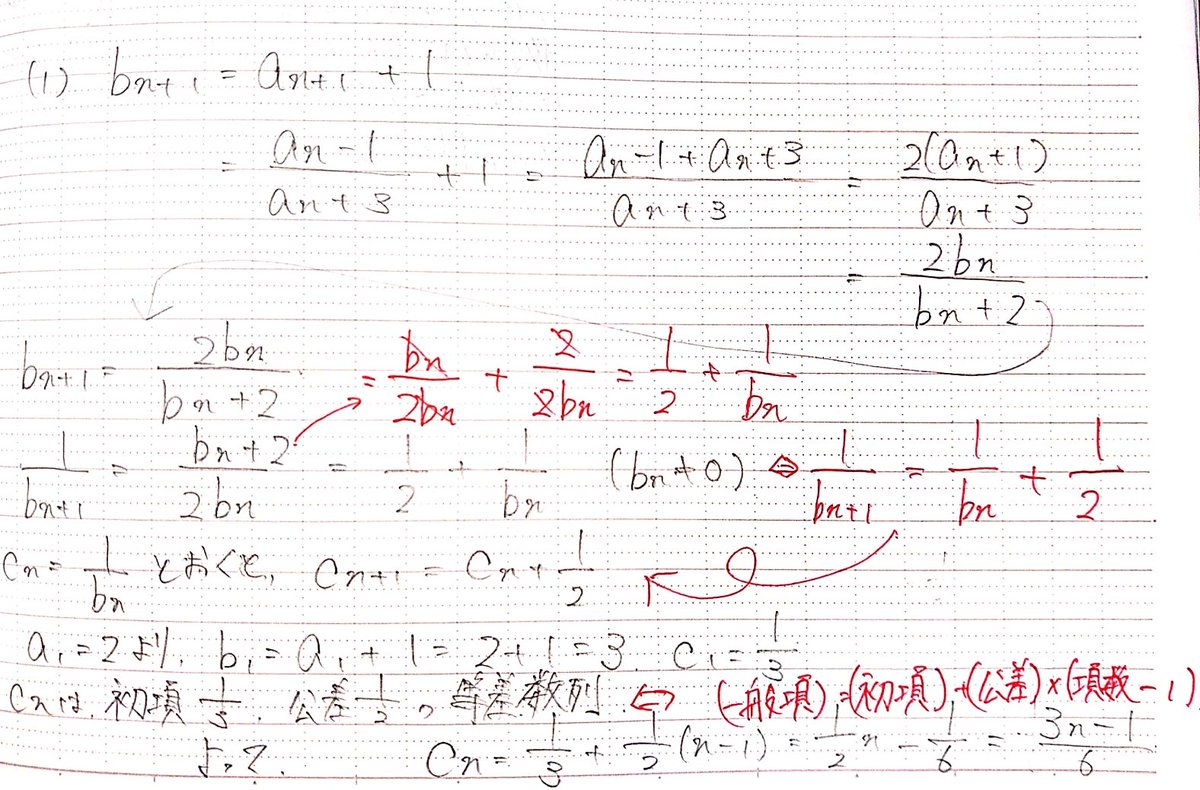 (1) bn+1 = an+1 + 1
= (an-1)/(an+3) + 1 = (an-1+an+3)/(an+3) = 2(an+1)/(an+3)
= 2bn/(bn+2)
bn+1 = 2bn/(bn+2) = bn/2bn + 2/2bn = 1/2 + 1/bn
1/bn+1 = (bn+2)/2bn = 1/2 + 1/bn (bn≠0) ⇔ 1/bn+1 = 1/bn + 1/2
Cn = 1/bn とおくと、 Cn+1 = Cn + 1/2
a1=2より、 b1 = a1 + 1 = 2+1 = 3. C1 = 1/3
Cnは、初項1/3、公差1/2の等差数列 ⇔ (一般項)=(初項)+(公差)×(項数-1)
よって、 Cn = 1/3 + 1/2(n-1) = 1/2n - 1/6 = (3n-1)/6